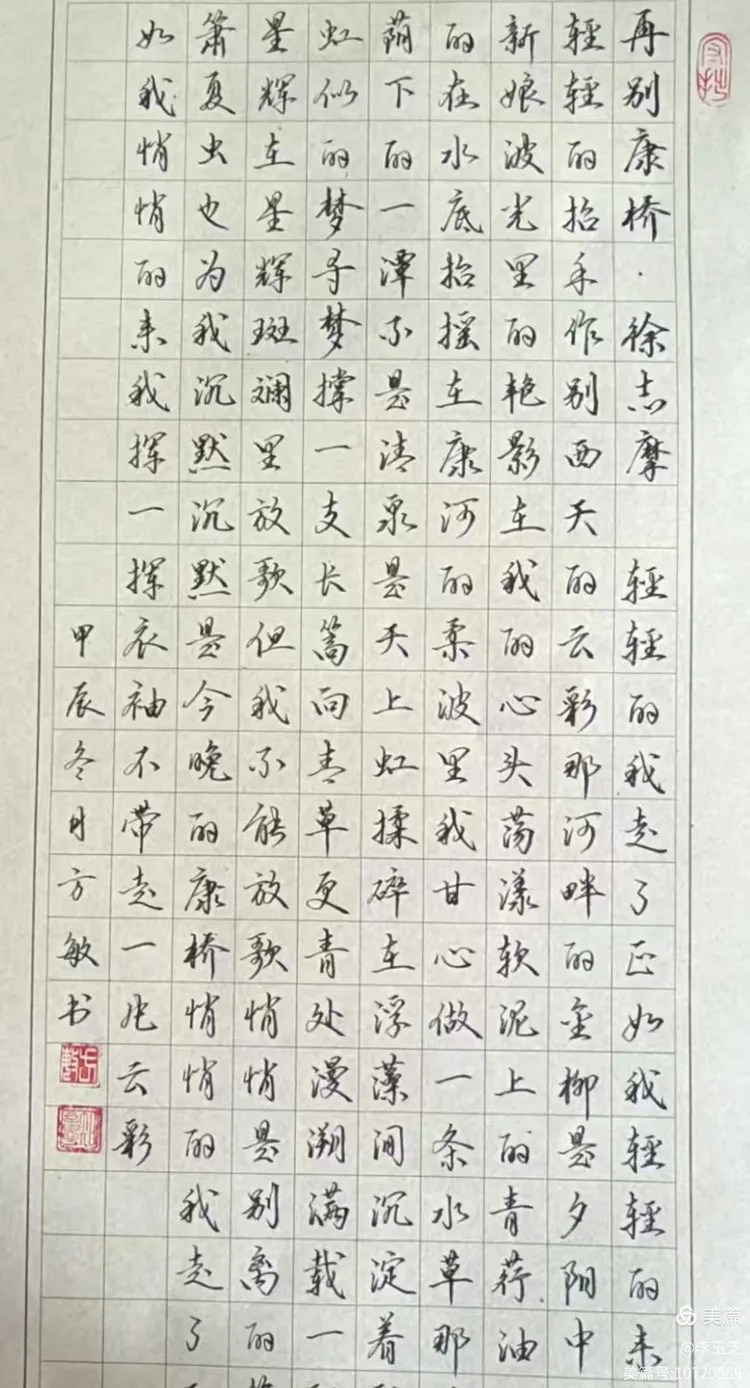 再别康桥·徐志摩 輕輕的我走了正如我輕輕的来
輕輕的招手作别西天的云彩那河畔的金柳是夕阳中
新娘波光里的艳影在我的心头荡漾软泥上的青荇油
的在水底招摇在康河的柔波里我甘心做一条水草那
荫下的一潭不是清泉是天上虹揉碎在浮藻间沉淀着
虹似的梦寻梦撑一支长篙向青草更青处漫溯满载一
星辉在星辉斑斓里放歌但我不能放歌悄悄是别离的
箫夏虫也为我沉默沉默是今晚的康桥悄悄的我走了
如我悄悄的来我挥一挥衣袖不带走一片云彩
甲辰冬月方敏书
美篇
@李玉芝
美篇号:10720865